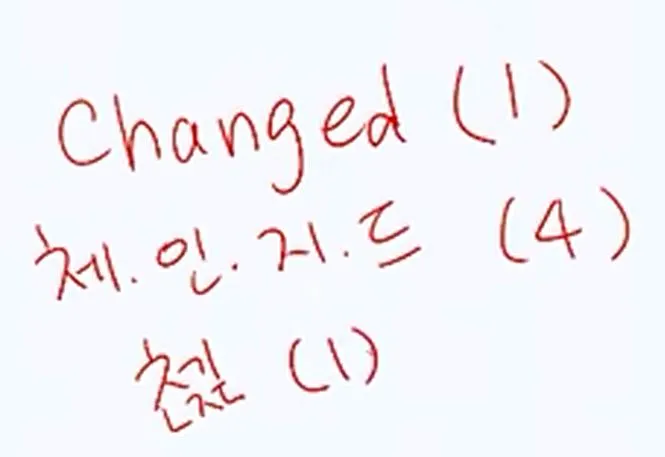 Changed (1)
체.인.지.드 (4)
(1)